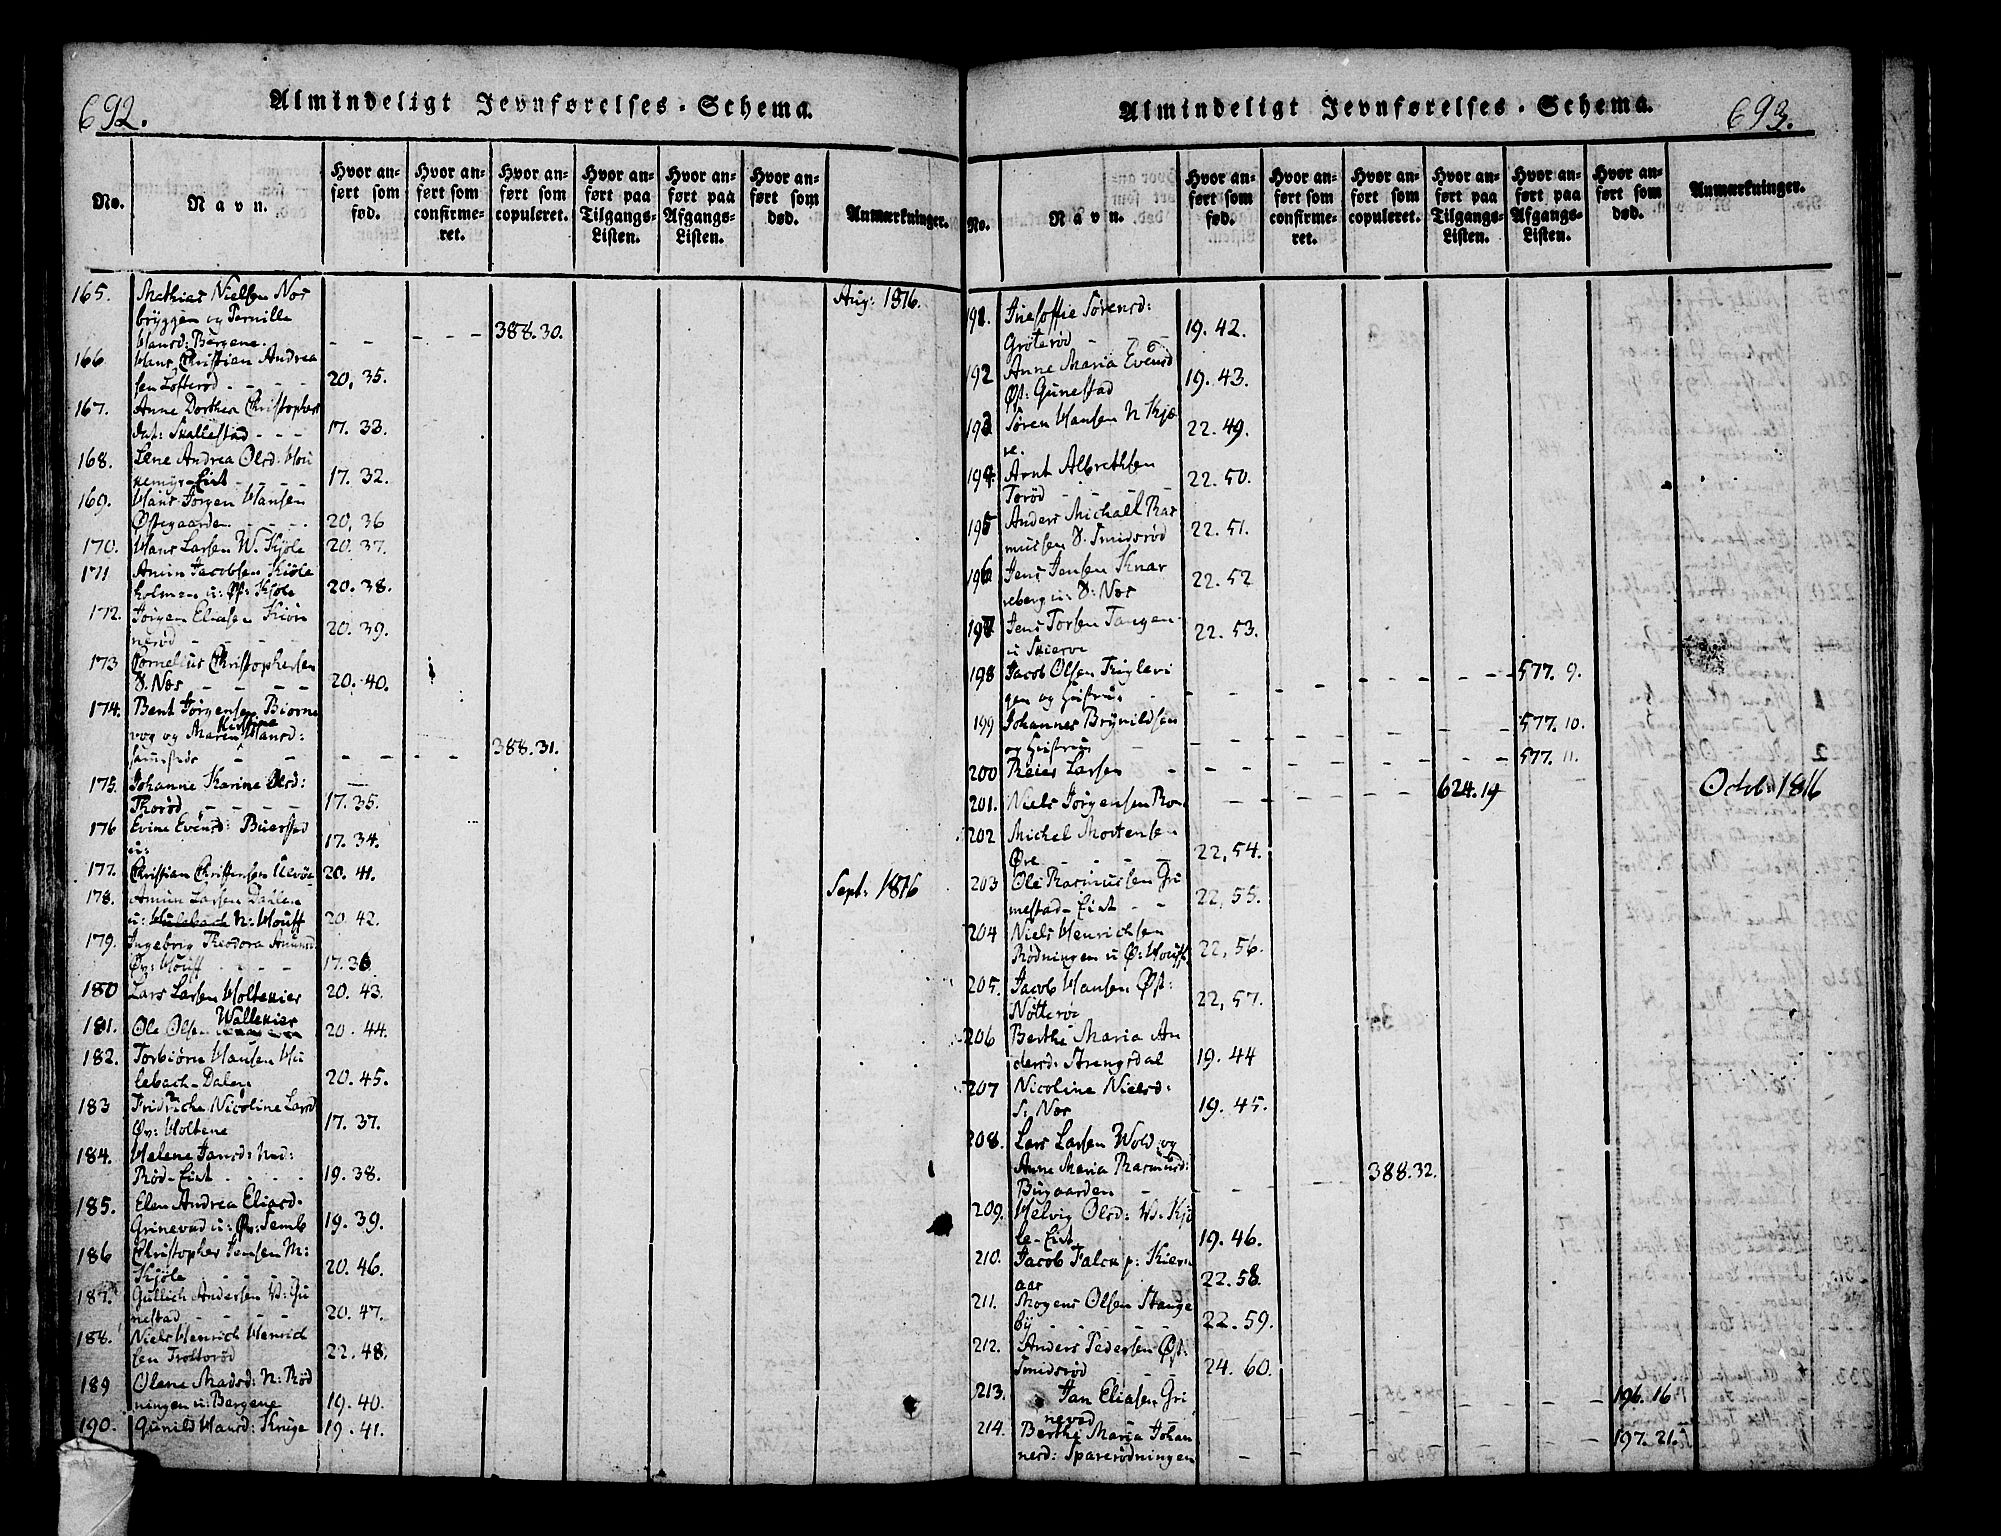 692.
Almindeligt Jevnførelses-Schema.
No.
Navn.
Hvor anført som fød.
Hvor anført som confirmeret.
Hvor anført som copuleret.
Hvor anført paa Tilgangs-Listen.
Hvor anført paa Afgangs-Listen.
Hvor anført som død.
Anmærkninger.
165. Mathias Nielsen Nor Aug: 1816.
bryggen og Pernille
Hansd: Bergene. - - - - - 388.30.
166 Hans Christian Andrea
sen Lofterød - - - - 20, 35.
167. Anne Dorthea Christophers
dat: Skallestad - - - 17. 33.
168. Lene Andrea Olsd. Hou
kemÿr-Eiet - - - 17. 32.
169. Hans Jørgen Hansen
Østegaarden - - - - 20, 36
170. Hans Larsen W. Kjøle 20. 37.
171 Amun Jacobsen Kiøle
holmen u: Øst: Kjøle 20. 38.
172. Jørgen Eliasen Kiøn
nerød - - - - 20. 39.
173 Cornelius Christophersen
S. Næs - - - - 20. 40.
174. Bent Jørgensen Biørne
vog og Maren Kirstine Hansd:
samesteds - - - - - - - 388.31.
175. Johanne Karine Olsd:
Thorød - - - - 17. 35.
176 Evine Evensd: Buerstad
u: 17. 34.
177. Christian Christensen 20. 41.
178. Amun Larsen Dahlen Sept: 1816
u: Hulebach N: Houff 20. 42.
179. Ingebrig Theodora Amunsd
Øv: Houff - - - - 17. 36
180 Lars Larsen Holtekier 20. 43.
181. Ole Olsen Wallekier 20. 44.
182. Torbiørn Hansen Hu
lebach-Dalen 20. 45.
183 Fridriche Nicoline Larsd
Øv: Holtene 17. 37.
184. Helene Jansd: Ned:
Rød-Eiet - - - - 19. 38.
185. Elen Andrea Eliasd.
Grinevad u: Øv: Semb 19. 39.
186 Christopher Jensen M:
Kjøle - - - - 20. 46.
187. Gullich Andersen W: Gu
nestad - - - - 20. 47.
188. Niels Henrich Henrich
sen Froltorød 22. 48.
189 Olene Madsd: N: Rød
ningen u: Bergene 19. 40.
190. Gunild Hansd: Kruge 19. 41.
Almindeligt Jevnførelses-Schema.
693.
No.
Navn.
Hvor anført som fød.
Hvor anført som confirmeret.
Hvor anført som copuleret.
Hvor anført paa Tilgangs-Listen.
Hvor anført paa Afgangs-Listen.
Hvor anført som død.
Anmærkninger.
191. Inesoffie Sørensd:
Grøterød - - - 19. 42.
192 Anne Maria Evensd
Øst: Gunestad 19. 43.
193 Søren Hansen N Kjø
le. 22. 49.
194. Arnt Albrethsen
Torød - - - - 22. 50.
195 Anders Michael Ras
mussen S. Smidsrød 22. 51.
196 Jens Jensen Knar
reberg u: S: Næs 22. 52
197 Jens Torsen Tangen
u Skierve 22. 53.
198 Jacob Olsen
gen og Hustrue - - - - - 577. 9.
199 Johannes Brynildsen
og Hustrue - - - - - 577. 10.
200 Reier Larsen - - - - - 577. 11.
201. Niels Jørgensen - - - - 624.14 Octob: 1816
202 Michel Mortensen
Øre - - - - 22, 54.
203 Ole Rasmussen Gri
mestad-Eiet - - 22, 55.
204 Niels Henrichsen
Rødningen u Ø: Houff 22, 56.
205. Jacob Hansen Øst:
Nøtterøe 22, 57.
206 Berthe Maria An
dersd: Strengsdal 19. 44
207 Nicoline Nielsd:
S: Næs 19. 45.
208. Lars Larsen Wold og
Anne Maria Rasmusd:
Bugaarden - - - - 388.32.
209. Helvig Olsd: W. Kjø
le-Eiet 19. 46.
210. Jacob Falck p: Kiern
aas 22. 58.
211. Mogens Olsen Stange
bÿ - - - - 22. 59.
212. Anders Pedersen Øst:
Smidsrød - - 24. 60.
213. Jan Eliasen Gri
nevad - - - - - 196. 16.
214. Berthe Maria Johan
nesd: Sparerødningen - - - - - 197. 21.